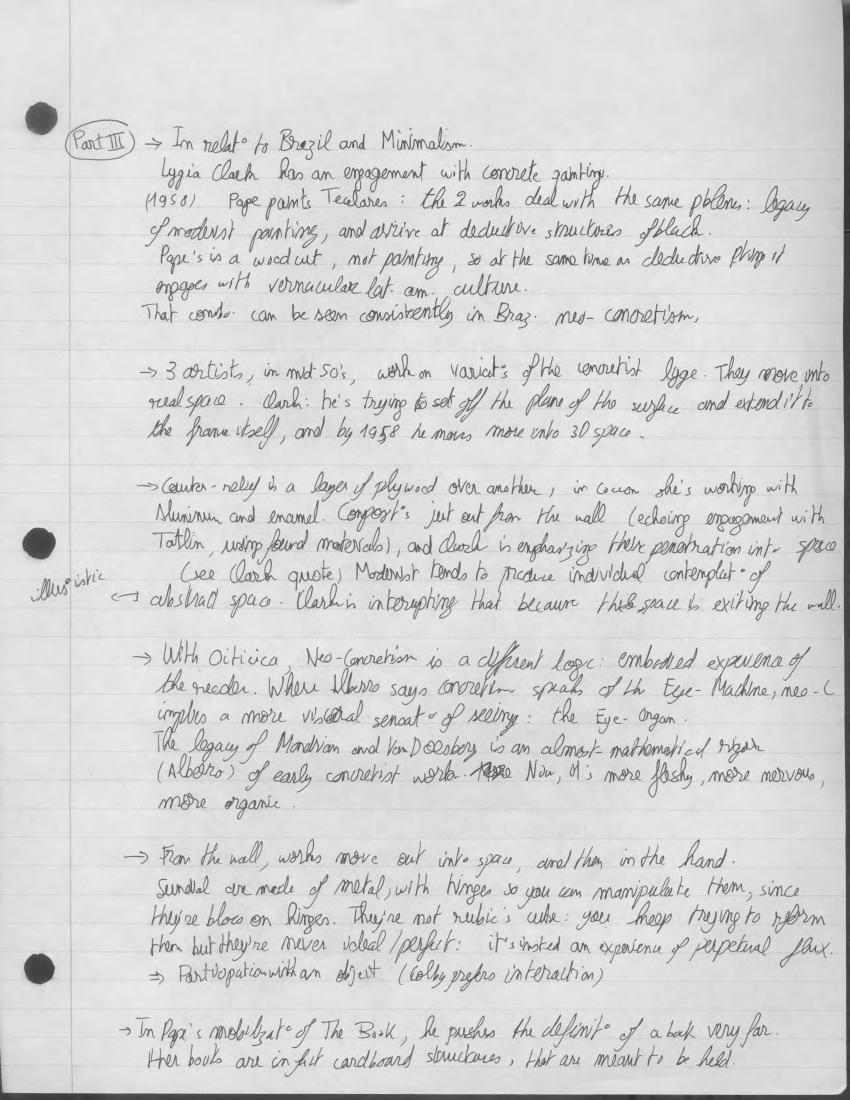 Part III → In relat° to Brazil and Minimalism.
Lygia Clark has an engagement with concrete painting.
(1950) Pape paints Tecelares : the 2 works deal with the same pblems: legacy
of modernist painting, and arrive at deductive structures of black.
Pape's is a woodcut, not painting, so at the same time as deductive it
engages with vernacular lat. am. culture.
That can be seen consistently in Braz. neo-concretism,
→ 3 artists, in mid-50's, work on variat°s of the concretist lgge. They move into
real space. Clark: he's trying to set off the plane of the surface and extend it to
the frame itself, and by 1958 he moves more into 3D space.
→ Counter-relief is a layer of plywood over another, in cocoon she's working with
Aluminum and enamel. Composit°s jut out from the wall (echoing engagement with
Tatlin, using found materials), and Clark is emphasizing their penetration into space
(see Clark quote) Modernist tends to produce individual contemplat° of
illus°istic ↔ abstract space. Clark is interrupting that because this space is exiting the wall.
→ With Oiticica, Neo-Concretism is a different logic: embodied experience of
the reader. Where Alberro says concretism speaks of th Eye-Machine, neo-C
implies a more visceral sensat° of seeing: the Eye-Organ.
The legacy of Mondrian and Van Doesberg is an almost-mathematical rigor
(Alberro) of early concretist work. Now, it's more fleshy, more nervous,
more organic.
→ From the wall, works move out into space, and then in the hand.
Sundial are made of metal, with hinges so you can manipulate them, since
they're blocs on hinges. They're not rubic's cube: you keep trying to reform
them but they're never ideal/perfect: it's insted an experience of perpetual flux.
⇒ Participation with an object (Colby prefers interaction)
→ In Pape's mobilizat° of The Book, he pushes the definit° of a book very far.
Her books are in fact cardboard structures, that are meant to be held.